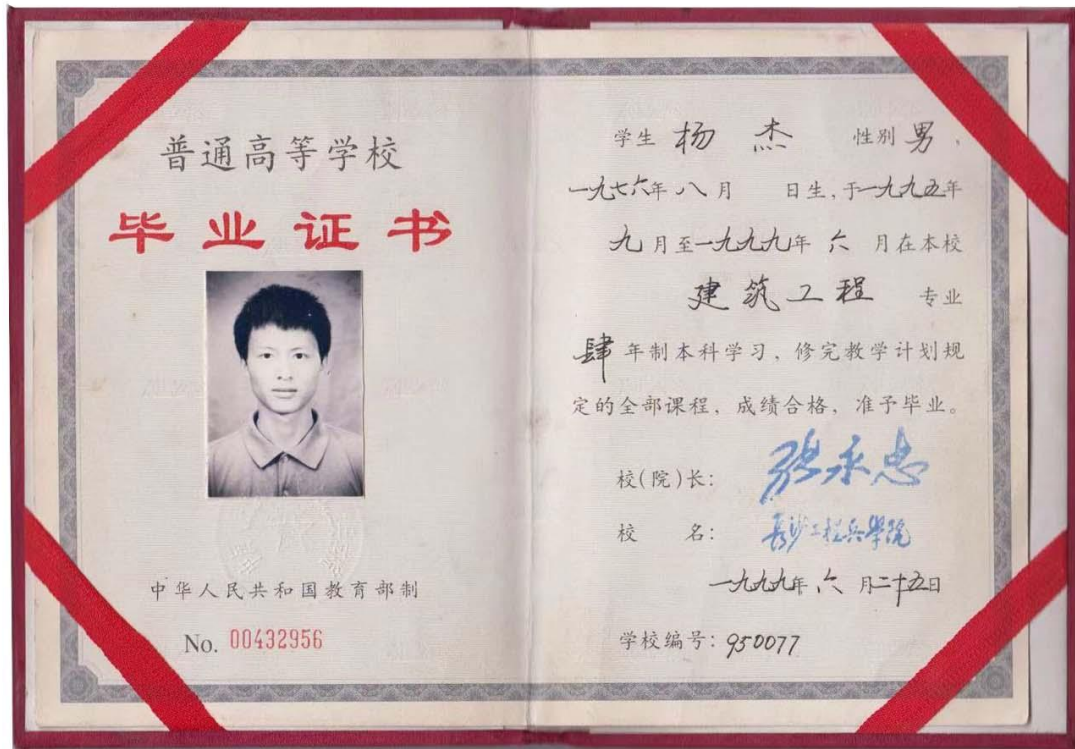 普通高等学校
毕业证书
中华人民共和国教育部制
No. 00432956
学生 杨杰 性别 男，
一九七六年 八月 日生，于一九九五年
九月至一九九九年 六月在本校
建筑工程 专业
肆年制本科学习，修完教学计划规
定的全部课程，成绩合格，准予毕业。
校(院)长： 张永忠
校 名： 長沙工程兵學院
一九九九年 六月二十五日
学校编号：950077